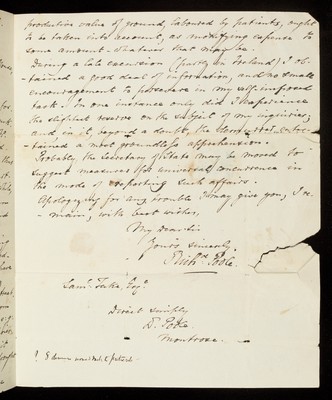 productive value of ground, laboured by patients, ought
to be taken into account, as modifying expense to
some amount - whatever that may be.
During a late excursion (partly in Ireland) I ob-
-tained a good deal of information, and no small
encouragement to persevere in my self-imposed
task. In one instance only did I experience
the slightest reserve on the subject of my inquiries;
and in it, beyond a doubt, the enter-
-tained a most groundless apprehension.
Probably the Secretary of State may be moved to
suggest measures for universal concurrence in
the mode of reporting such affairs.
Apologising for any trouble I may give you, I re-
-main, with best wishes,
My dear Sir
Yours sincerely,
Richd. Poole.
Saml. Tuke, Esqr.
Direct simply
Dr. Poole
Montrose.